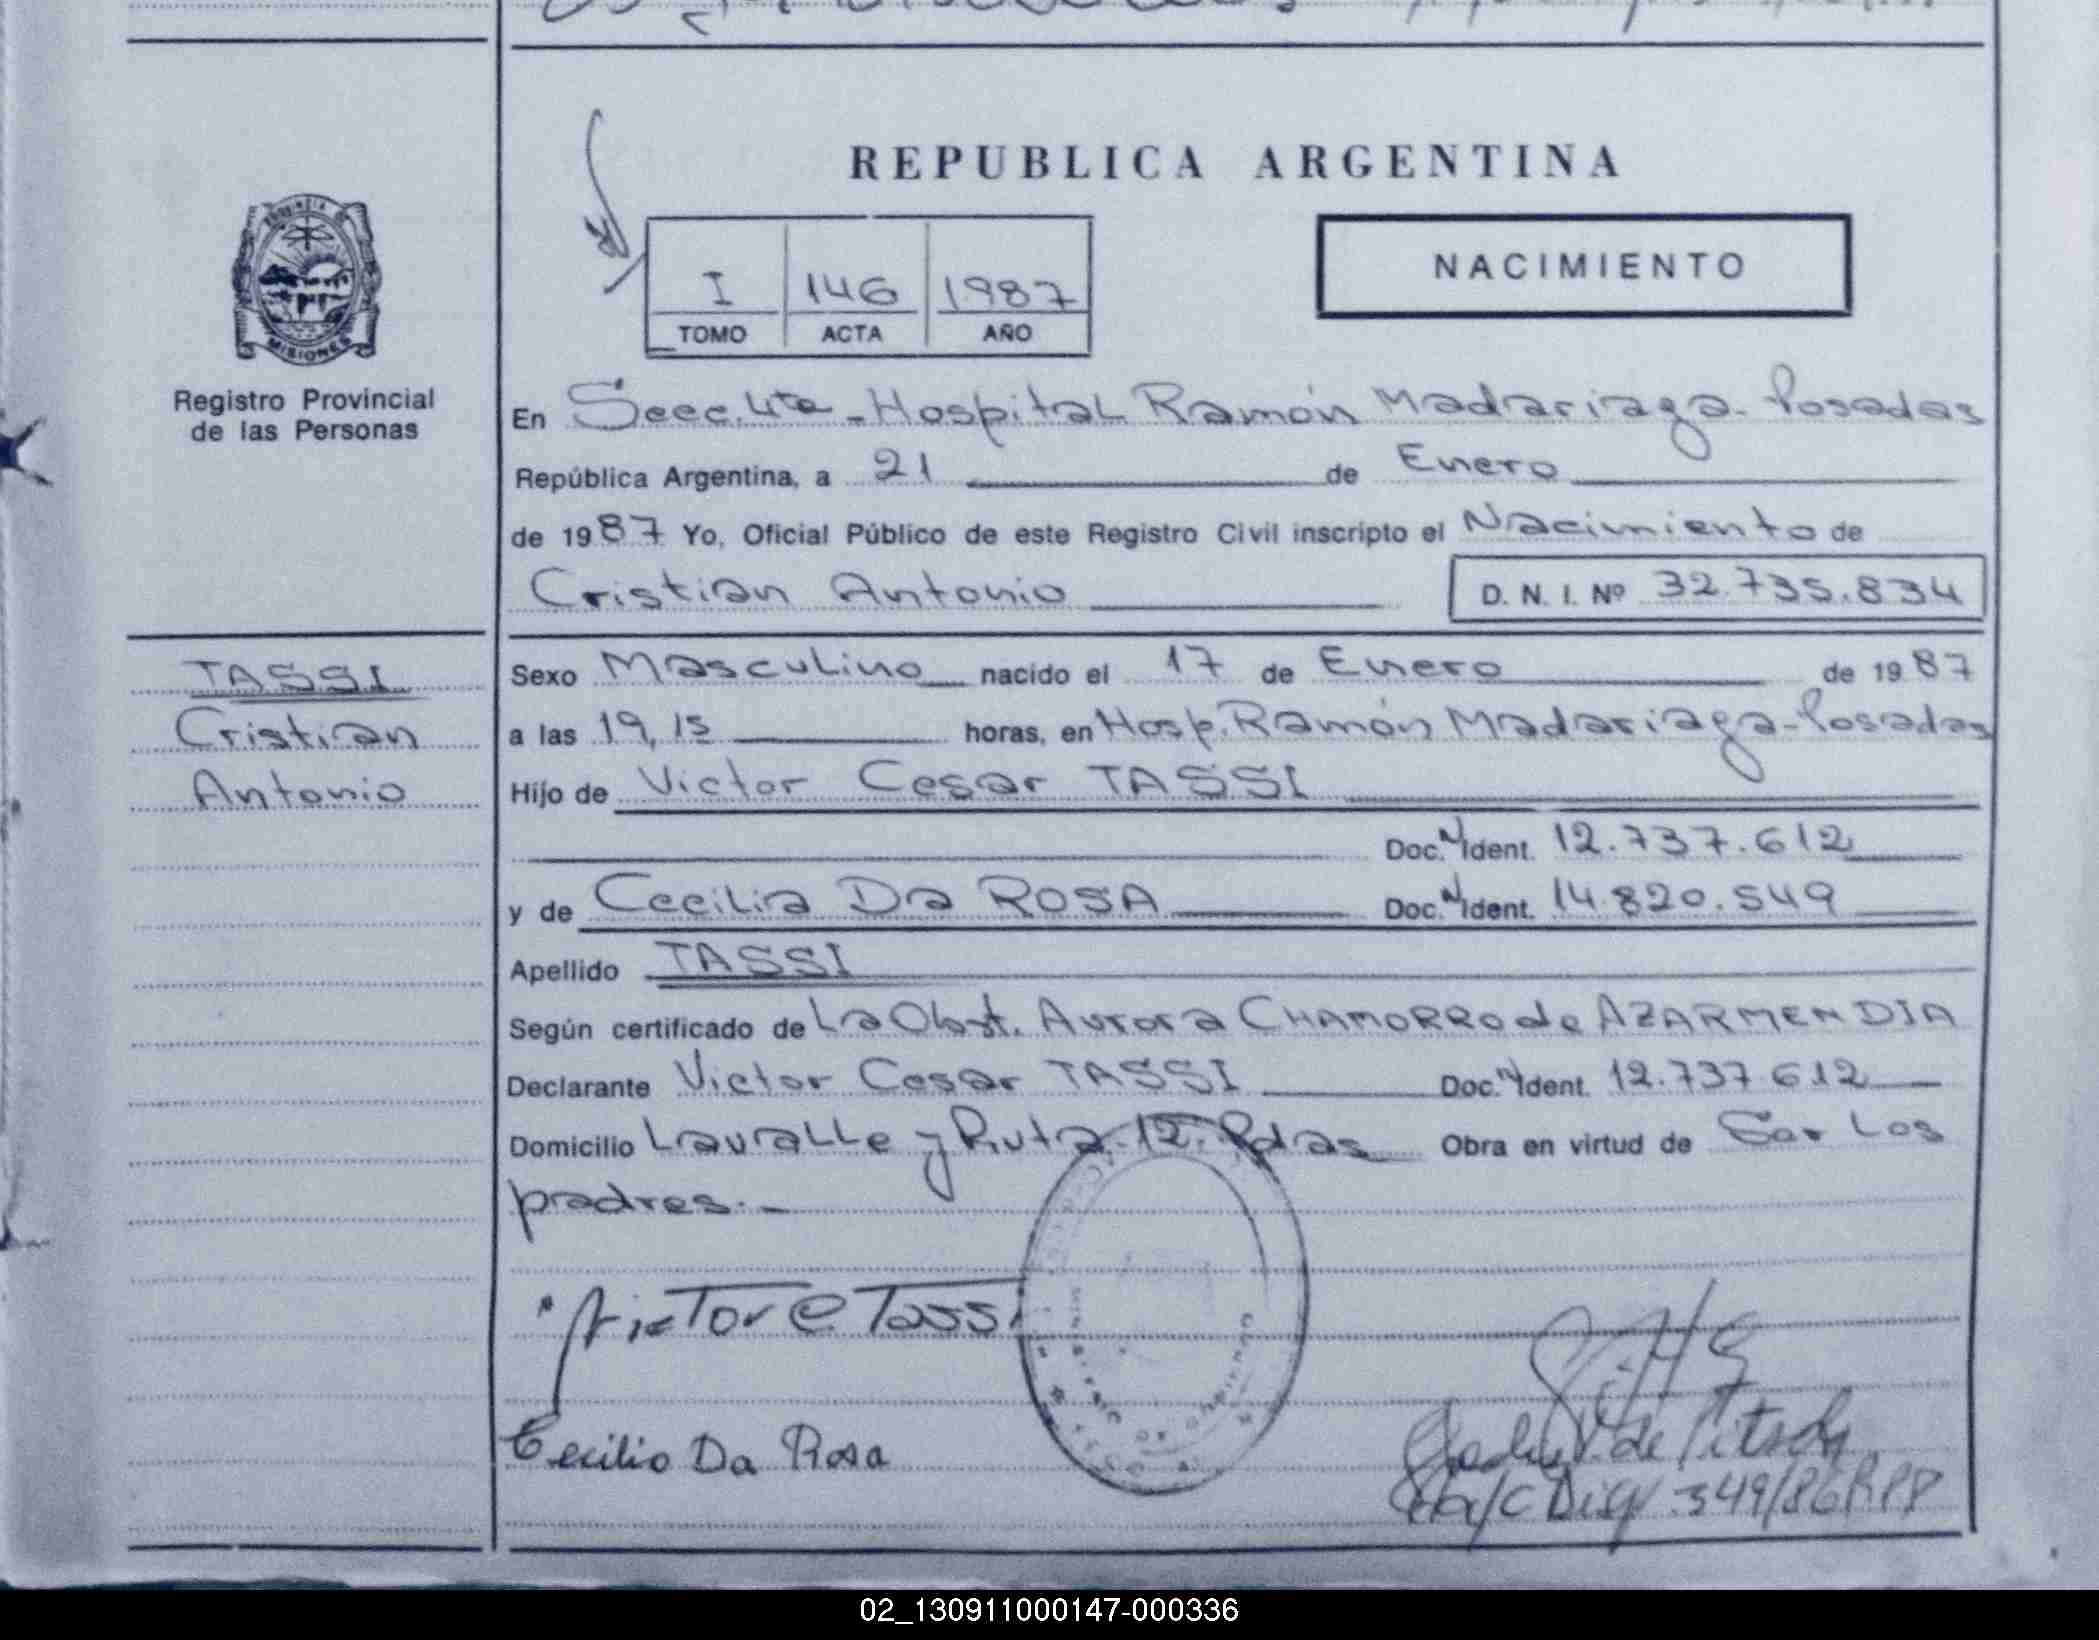 REPUBLICA ARGENTINA
NACIMIENTO
I 146 1987
TOMO ACTA AÑO
MISIONES
Registro Provincial
de las Personas
En Secc. 4ta - Hospital Ramón Madariaga - Posadas
República Argentina, a 21 de Enero
de 1987 Yo, Oficial Público de este Registro Civil inscripto el Nacimiento de
Cristian Antonio D. N. I. Nº 32.735.834
TASSI
Cristian
Antonio
Sexo Masculino nacido el 17 de Enero de 1987
a las 19,15 horas, en Hosp. Ramón Madariaga - Posadas
Hijo de Victor Cesar TASSI
Doc. N Ident. 12.737.612
y de Cecilia Da ROSA Doc. N Ident. 14.820.549
Apellido TASSI
Según certificado de La Obst. Aurora CHAMORRO de AZARMENDIA
Declarante Victor Cesar TASSI Doc. N Ident. 12.737.612
Domicilio Lavalle y Ruta 12. Pdas Obra en virtud de Ser Los
padres. -
Victor C Tassi
Cecilia Da Rosa
de
349/86 RPP
02_130911000147-000336